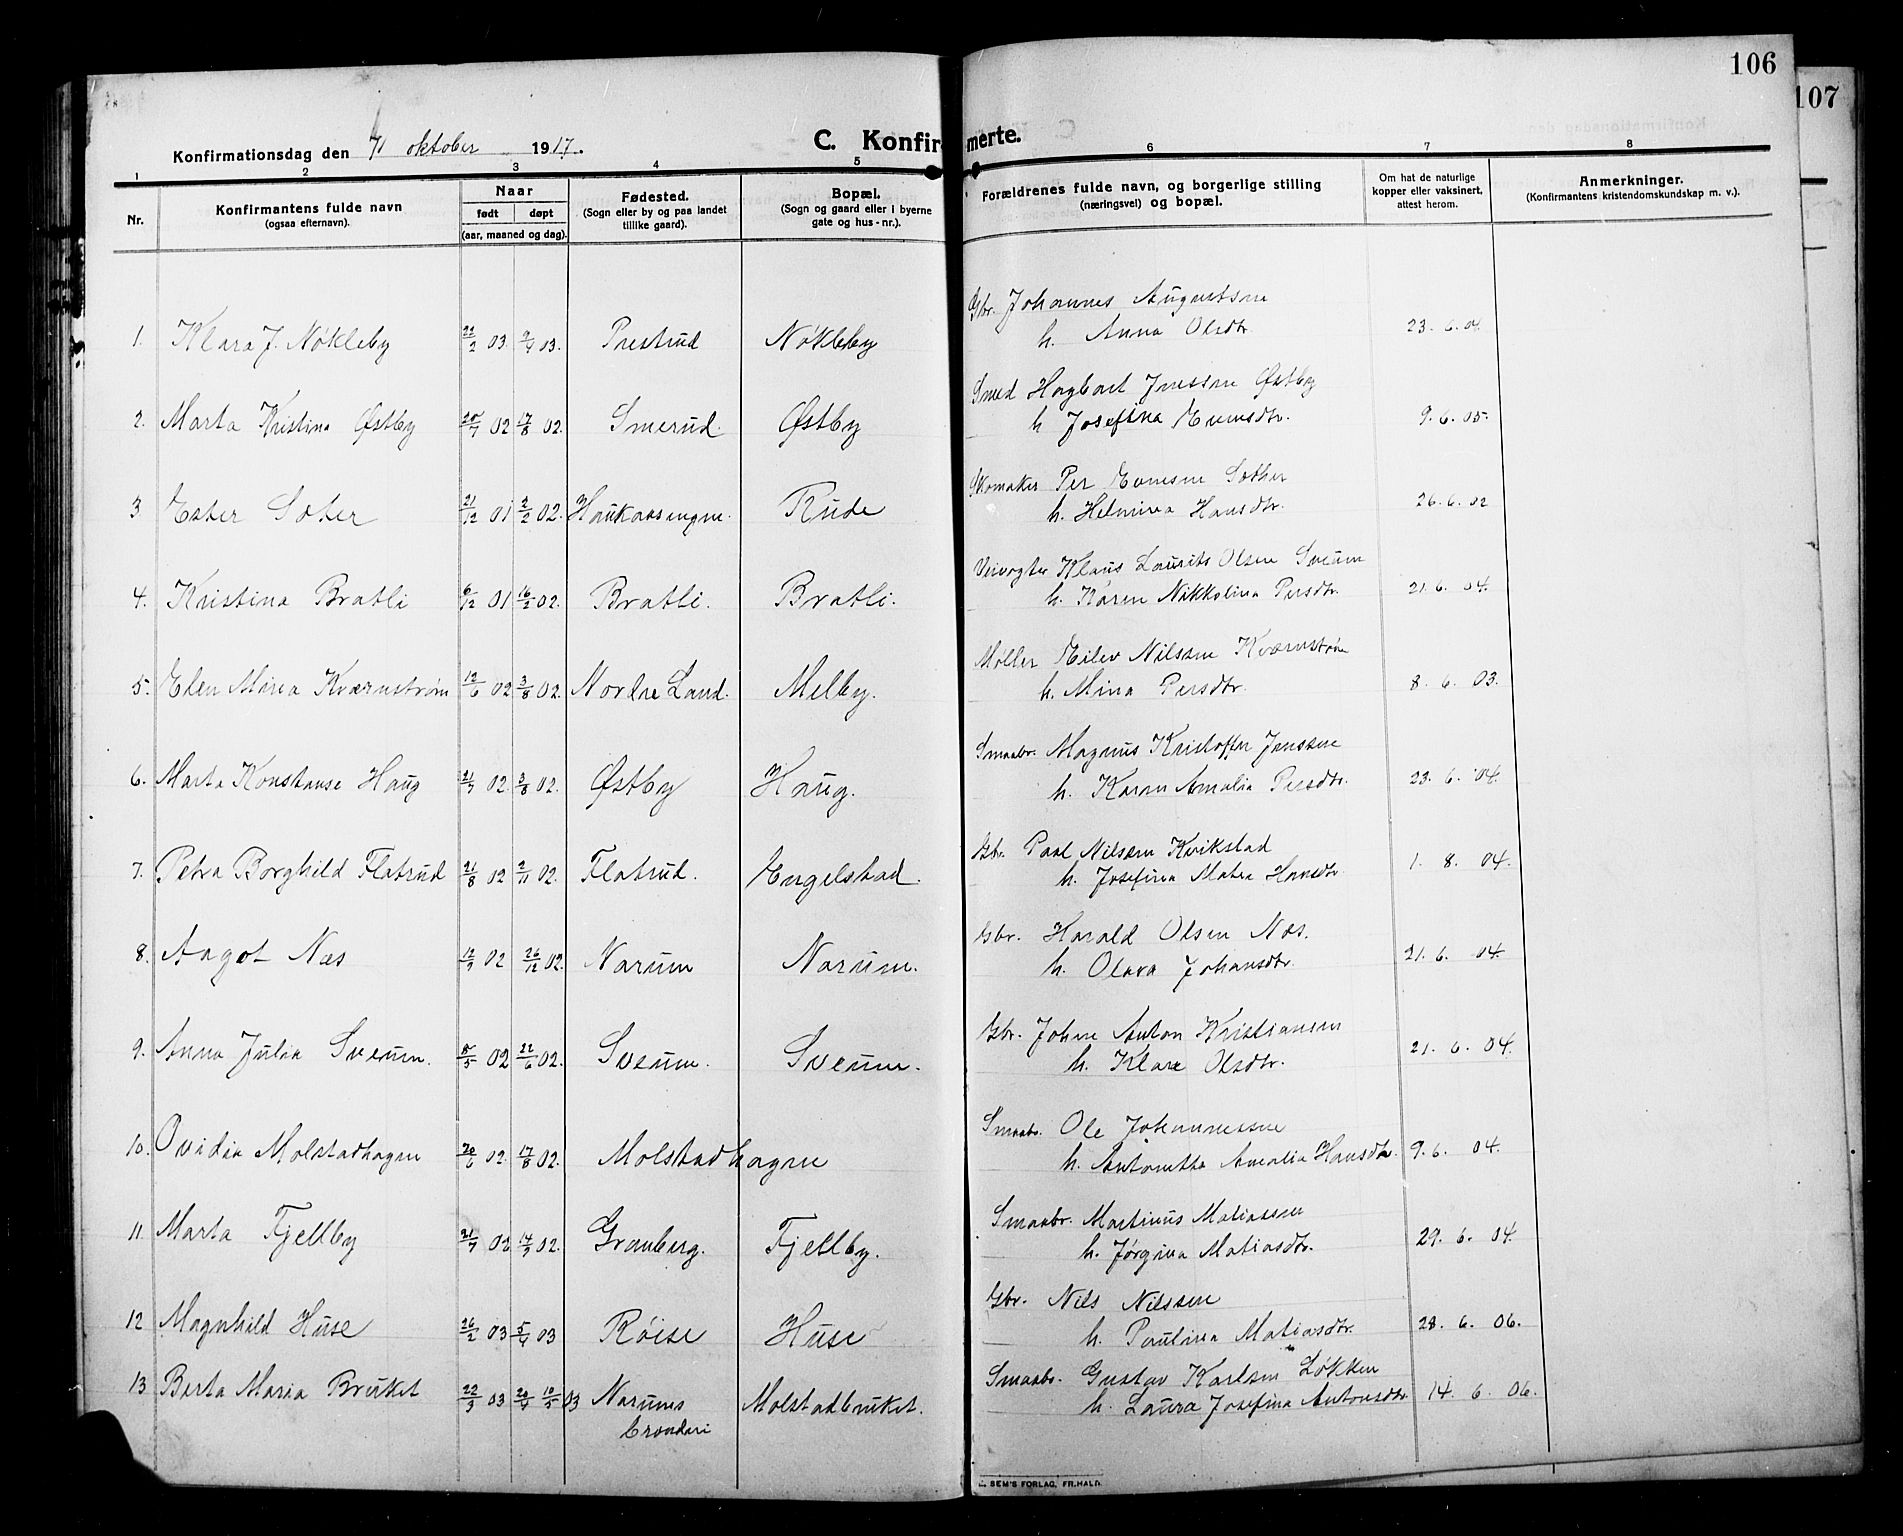 106
107
Konfirmationsdag den 7/ oktober 1917.
C. Konfirmerte.
1 2 3 4 5 6 7 8
Nr.
Konfirmantens fulde navn
(ogsaa efternavn).
Naar
født døpt
(aar, maaned og dag).
Fødested.
(Sogn eller by og paa landet
tillike gaard).
Bopæl.
(Sogn og gaard eller i byerne
gate og hus-nr.).
Forældrenes fulde navn, og borgerlige stilling
(næringsvei) og bopæl.
Om hat de naturlige
kopper eller vaksinert,
attest herom.
Anmerkninger.
(Konfirmantens kristendomskundskap m. v.).
Gbr. Johannes Augustsen
1. Klara J. Nøkleby 22/2 03. 9/4 03. Prestrud Nøkleby h. Anna Olsdtr. 23. 6. 04.
Smed Hagbart Jenssen Østby
2. Marta Kristina Østby 20/7 02 17/8 02. Smerud. Østby h Josefina Evensdtr. 9. 6. 05.
Skomaker Per Evensen Sæther
3 Ester Sæter 21/12 01 2/2 02. Haukaasengen. Rude h. Helmina Hansdtr. 26. 6. 02
Veivogter Klaus Laurits Olsen Sveum
4. Kristina Bratli 6/12 01 16/2 02. Bratli. Bratli. h. Karen Nikkolina Persdtr. 21. 6. 04.
Møller Eilev Nilssen Kværnstrøm
5. Elen Mina Kværnstrøm 12/6 02 3/8 02. Nordre Land. Melby. h. Mina Persdtr. 8. 6. 03.
Smaabr. Magnus Kristoffer Jenssen
6. Marta Konstanse Haug 21/7 02. 3/8 02. Østby Haug. h. Karen Amalia Persdtr. 23. 6. 04.
Gbr. Paal Nilssen Kvikstad
7. Petra Borghild Flatrud 21/8 02 2/11 02. Flatrud. Engelstad. h. Josefina Matea Hansdtr. 1. 8. 04.
Gbr. Harald Olsen Næs.
8. Aagot Næs 12/9 02 26/12 02. Narum Narum. h. Olava Johansdtr. 21. 6. 04.
Gbr. Johan Anton Kristiansen
9. Anna Julia Sveum. 5/5 02 22/6 02. Sveum. Sveum. h. Klara Olsdtr. 21. 6. 04.
Smaabr. Ole Johannessen
10. Ovidia Molstadhagen 20/6 02. 17/8 02. Molstadhagen h. Antonette Amalia Hansdtr. 9. 6. 04.
Smaabr. Martinus Matiassen
11. Marta Fjellby 21/7 02 14/9 02. Granberg. Fjellby. h. Jørgina Matiasdtr. 29. 6. 04.
Gbr. Nils Nilssen
12 Magnhild Huse 26/2 03 5/4 03 Røise Huse h. Paulina Matiasdtr. 28. 6. 06.
Smaabr. Gustav Karlsen Løkken
13 Berta Maria Bruket 22/3 03 20/4 10/5 03 Narums Molstadbruket. h. Laura Josefina Antonsdtr. 14. 6. 06.
SEM'S FORLAG, FR.HALD.